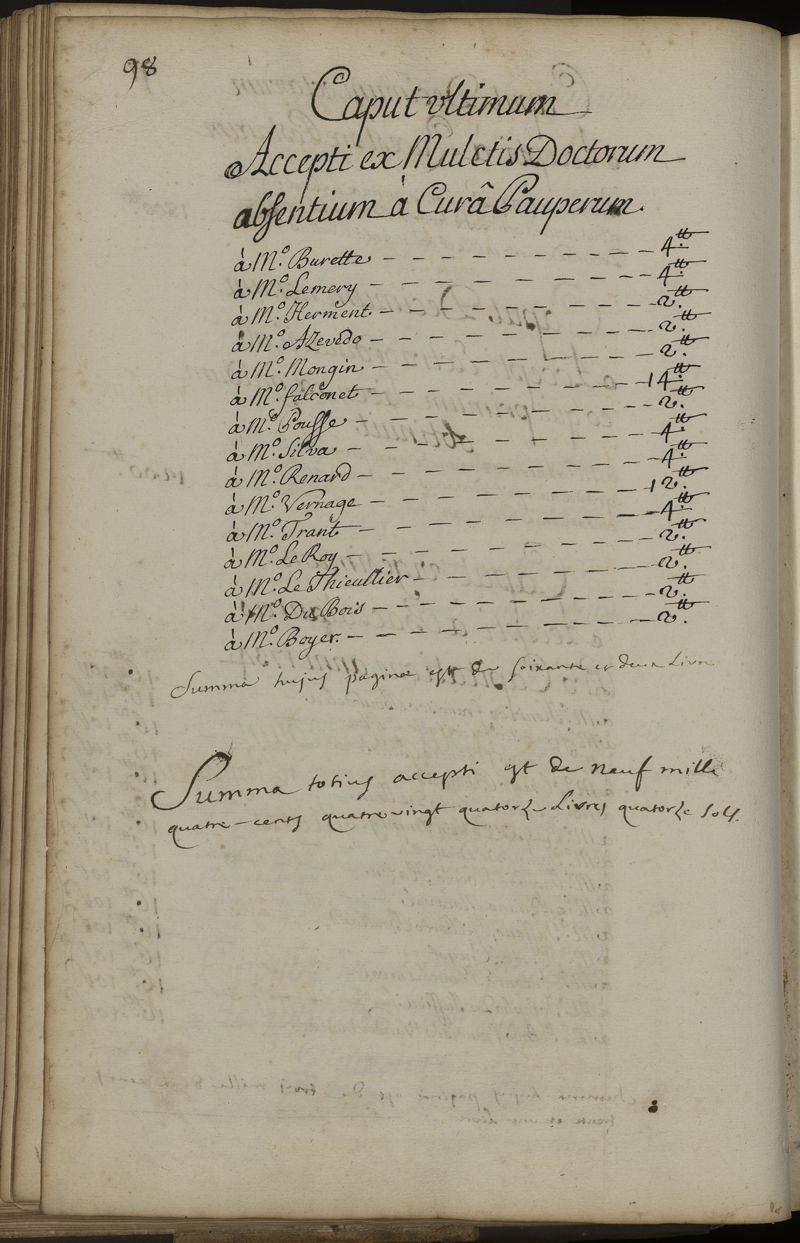 98
Caput vltimum
Accepti ex Mulctis Doctorum
absentium à Curâ Pauperum.
à M.º Burette - - - - - - - - 4.tt
à M.º Lemery - - - - - - - - 4.tt
à M.º Herment - - - - - - - - 2.tt
à M.º Azevedo - - - - - - - - 2.tt
à M.º Mongin - - - - - - - - 2.tt
à M.º falconet - - - - - - - - 14.tt
à M.º Pousse - - - - - - - - 2.tt
à M.º Silva - - - - - - - - 4.tt
à M.º Renard - - - - - - - - 4.tt
à M.º Vernage - - - - - - - - 12.tt
à M.º Trant - - - - - - - - 4.tt
à M.º Le Roy - - - - - - - - 2.tt
à M.º Le Thieullier - - - - - - - 2.tt
à M.º Du Bois - - - - - - - - 2.tt
à M.º Boyer. - - - - - - - - 2.tt
Summa hujus paginæ est de soixante et deux Livres
Summa totius accepti est de neuf mille
quatre-cents quatrevingt quatorze Livres quatorze sols.